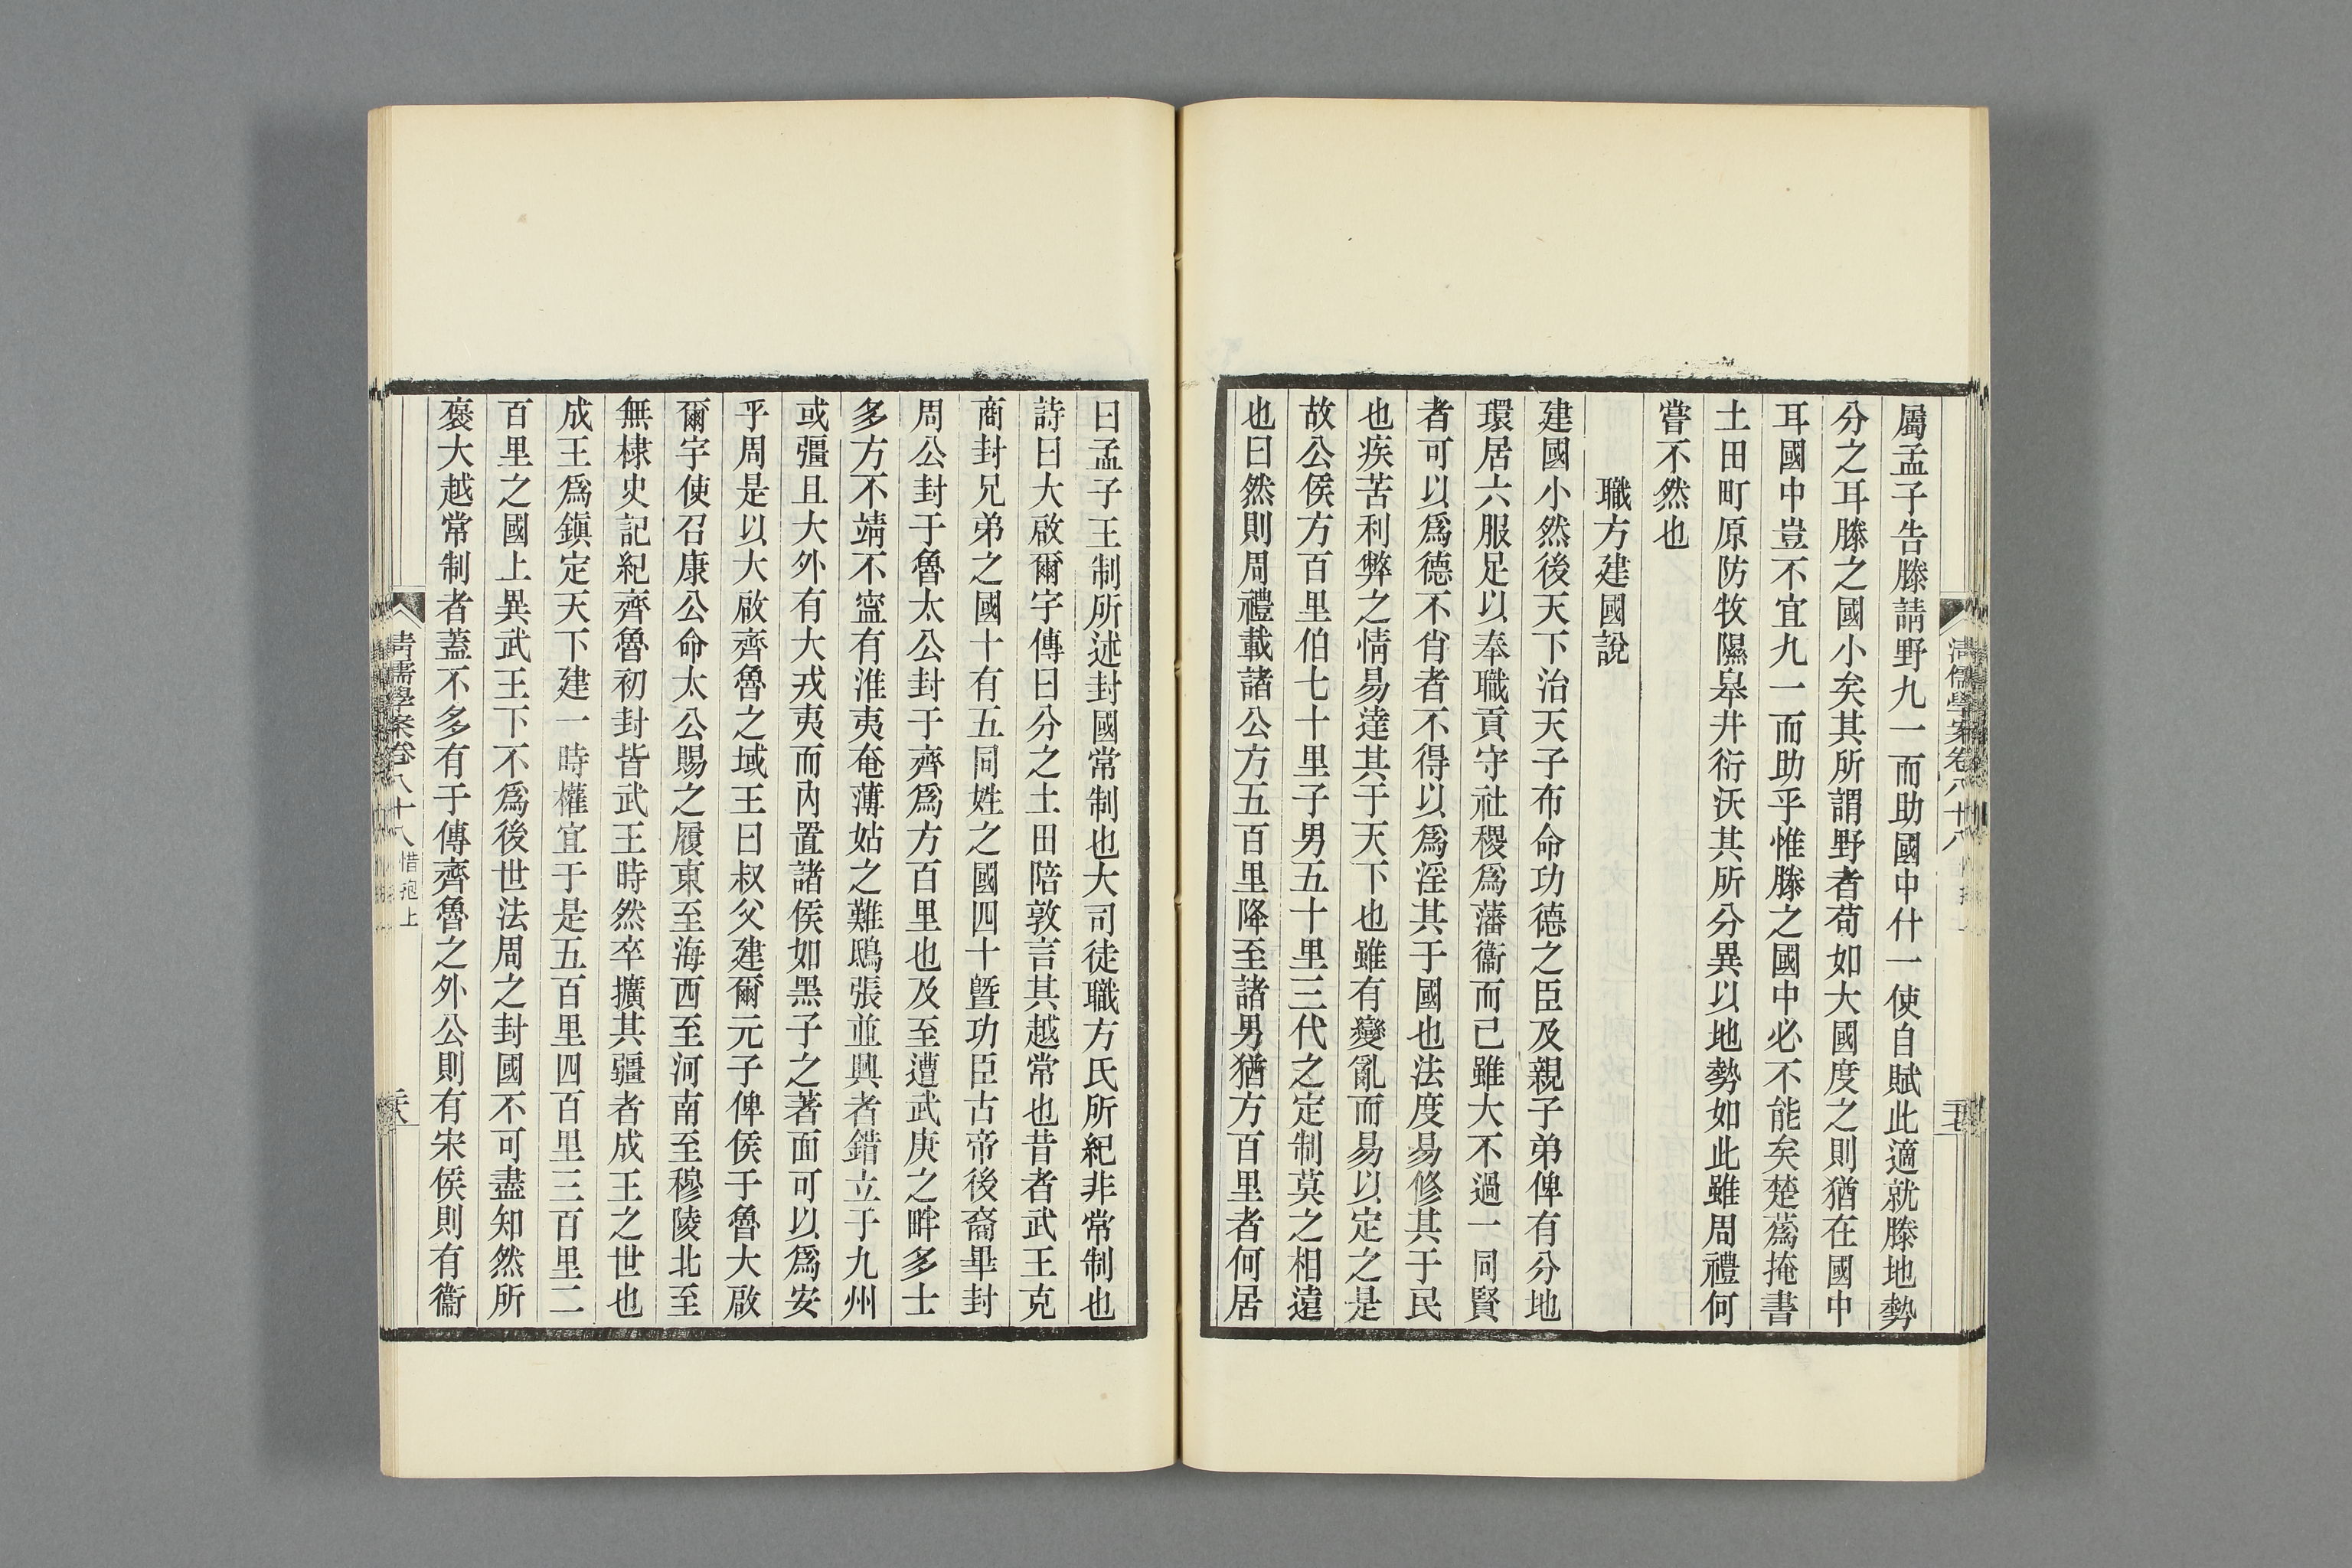 屬孟子告滕請野九一而助國中什一使自賦此適就滕地勢
分之耳滕之國小矣其所謂野者苟如大國度之則猶在國中
耳國中豈不宜九一而助乎惟滕之國中必不能矣楚蔿掩書
土田町原防牧隰皋井衍沃其所分異以地勢如此雖周禮何
嘗不然也
職方建國說
建國小然後天下治天子布命功德之臣及親子弟俾有分地
環居六服足以奉職貢守社稷爲藩衞而已雖大不過一同賢
者可以爲德不肖者不得以爲淫其于國也法度易修其于民
也疾苦利弊之情易達其于天下也雖有變亂而易以定之是
故公侯方百里伯七十里子男五十里三代之定制莫之相遠
也曰然則周禮載諸公方五百里降至諸男猶方百里者何居
曰孟子王制所述封國常制也大司徒職方氏所紀非常制也
詩曰大啟爾宇傳曰分之土田陪敦言其越常也昔者武王克
商封兄弟之國十有五同姓之國四十曁功臣古帝後裔畢封
周公封于魯太公封于齊爲方百里也及至遭武庚之畔多士
多方不靖不寍有淮夷奄薄姑之難鴟張並興者錯立于九州
或彊且大外有大戎夷而內置諸侯如黑子之著面可以爲安
乎周是以大啟齊魯之域王曰叔父建爾元子俾侯于魯大啟
爾宇使召康公命太公賜之履東至海西至河南至穆陵北至
無棣史記紀齊魯初封皆武王時然卒擴其疆者成王之世也
成王爲鎭定天下建一時權宜于是五百里四百里三百里二
百里之國上異武王下不爲後世法周之封國不可盡知然所
褒大越常制者蓋不多有于傳齊魯之外公則有宋侯則有衞
清儒學案卷八十八 惜抱上
清儒學案卷八十八